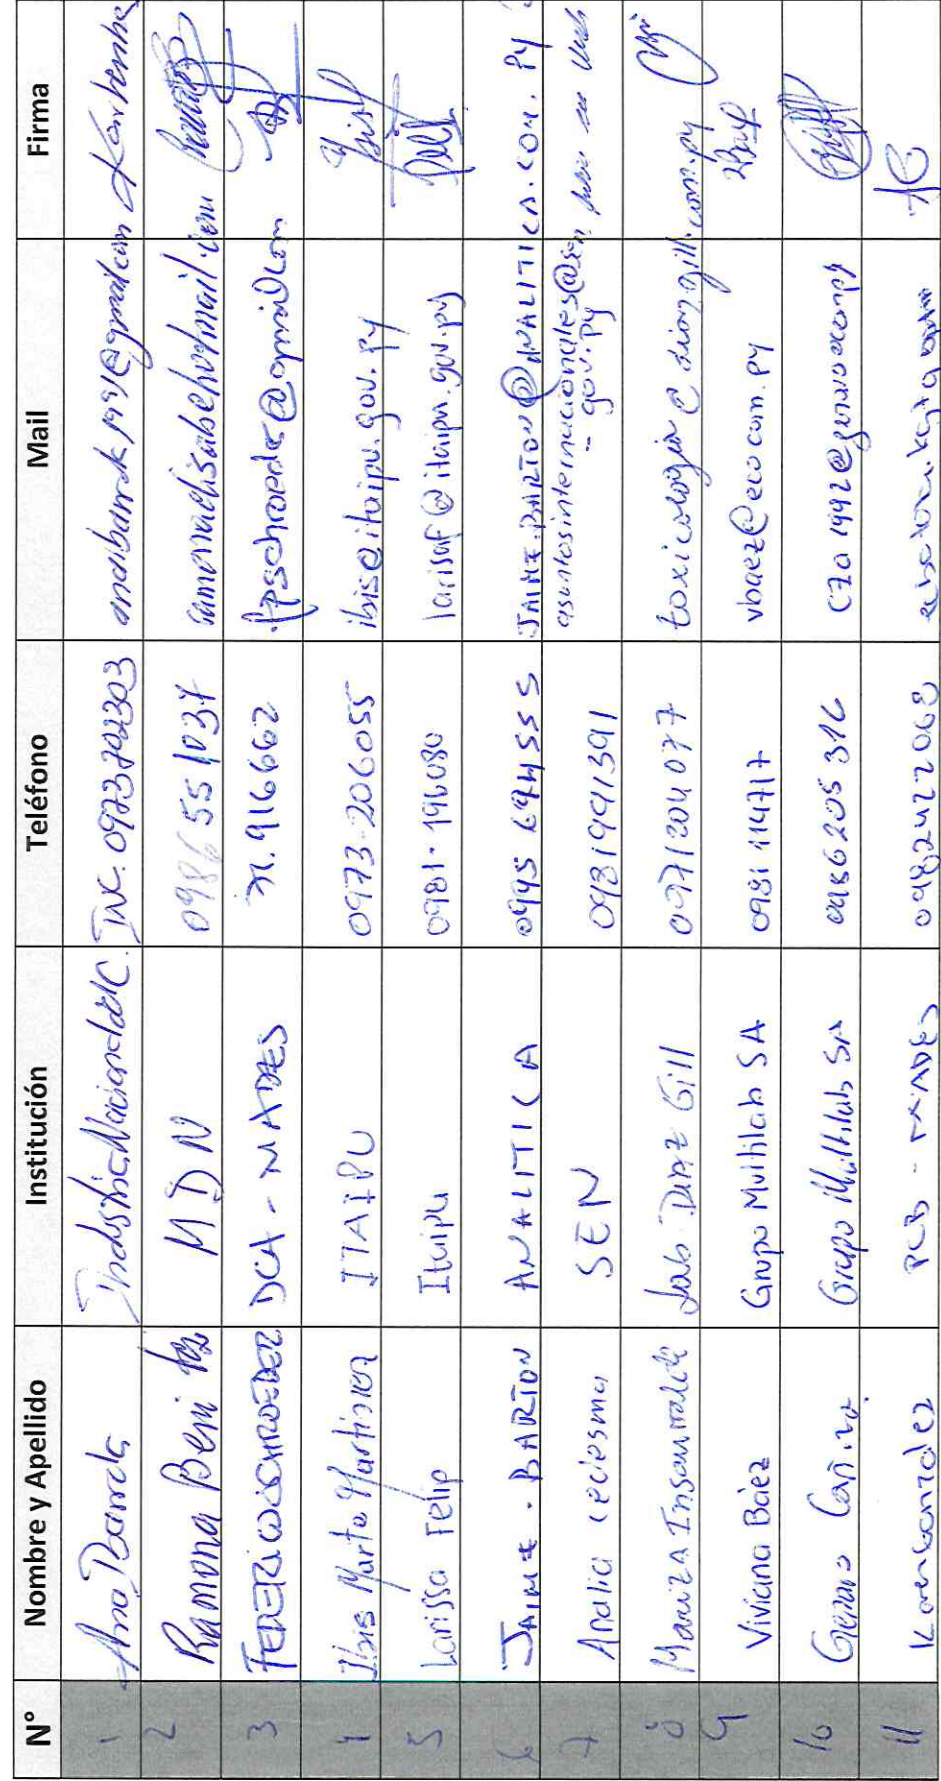 N° Nombre y Apellido Institución Teléfono Mail Firma
1 Ana Industria Nacional del C. INC. 0973702303
2 Ramona MDN 0986551037
3 FEDERICO SCHROEDER DCA - MADES 71.916662
4 Ibis Marte Martinez ITAIPU 0973-206055 ibis@itaipu.gov.py
5 Larissa Felip Itaipu 0981-196080 larisaf@itaipu.gov.py
6 JAIME BARTON ANALITICA 0995 694555 JAIME.BARTON@ANALITICA.COM.PY
7 Analia Ledesma SEN 0981991391 asuntosinternacionales@sen
gov.py
8 Insaurralde Lab Diaz Gill 0971204077 toxicologia@diazgill.com.py
9 Viviana Báez Grupo Multilab SA 0981 114717 vbaez@ecocom.py
10 Grupo Multilab SA
11 Karen Gonzalez PCB - MADES 0982422068